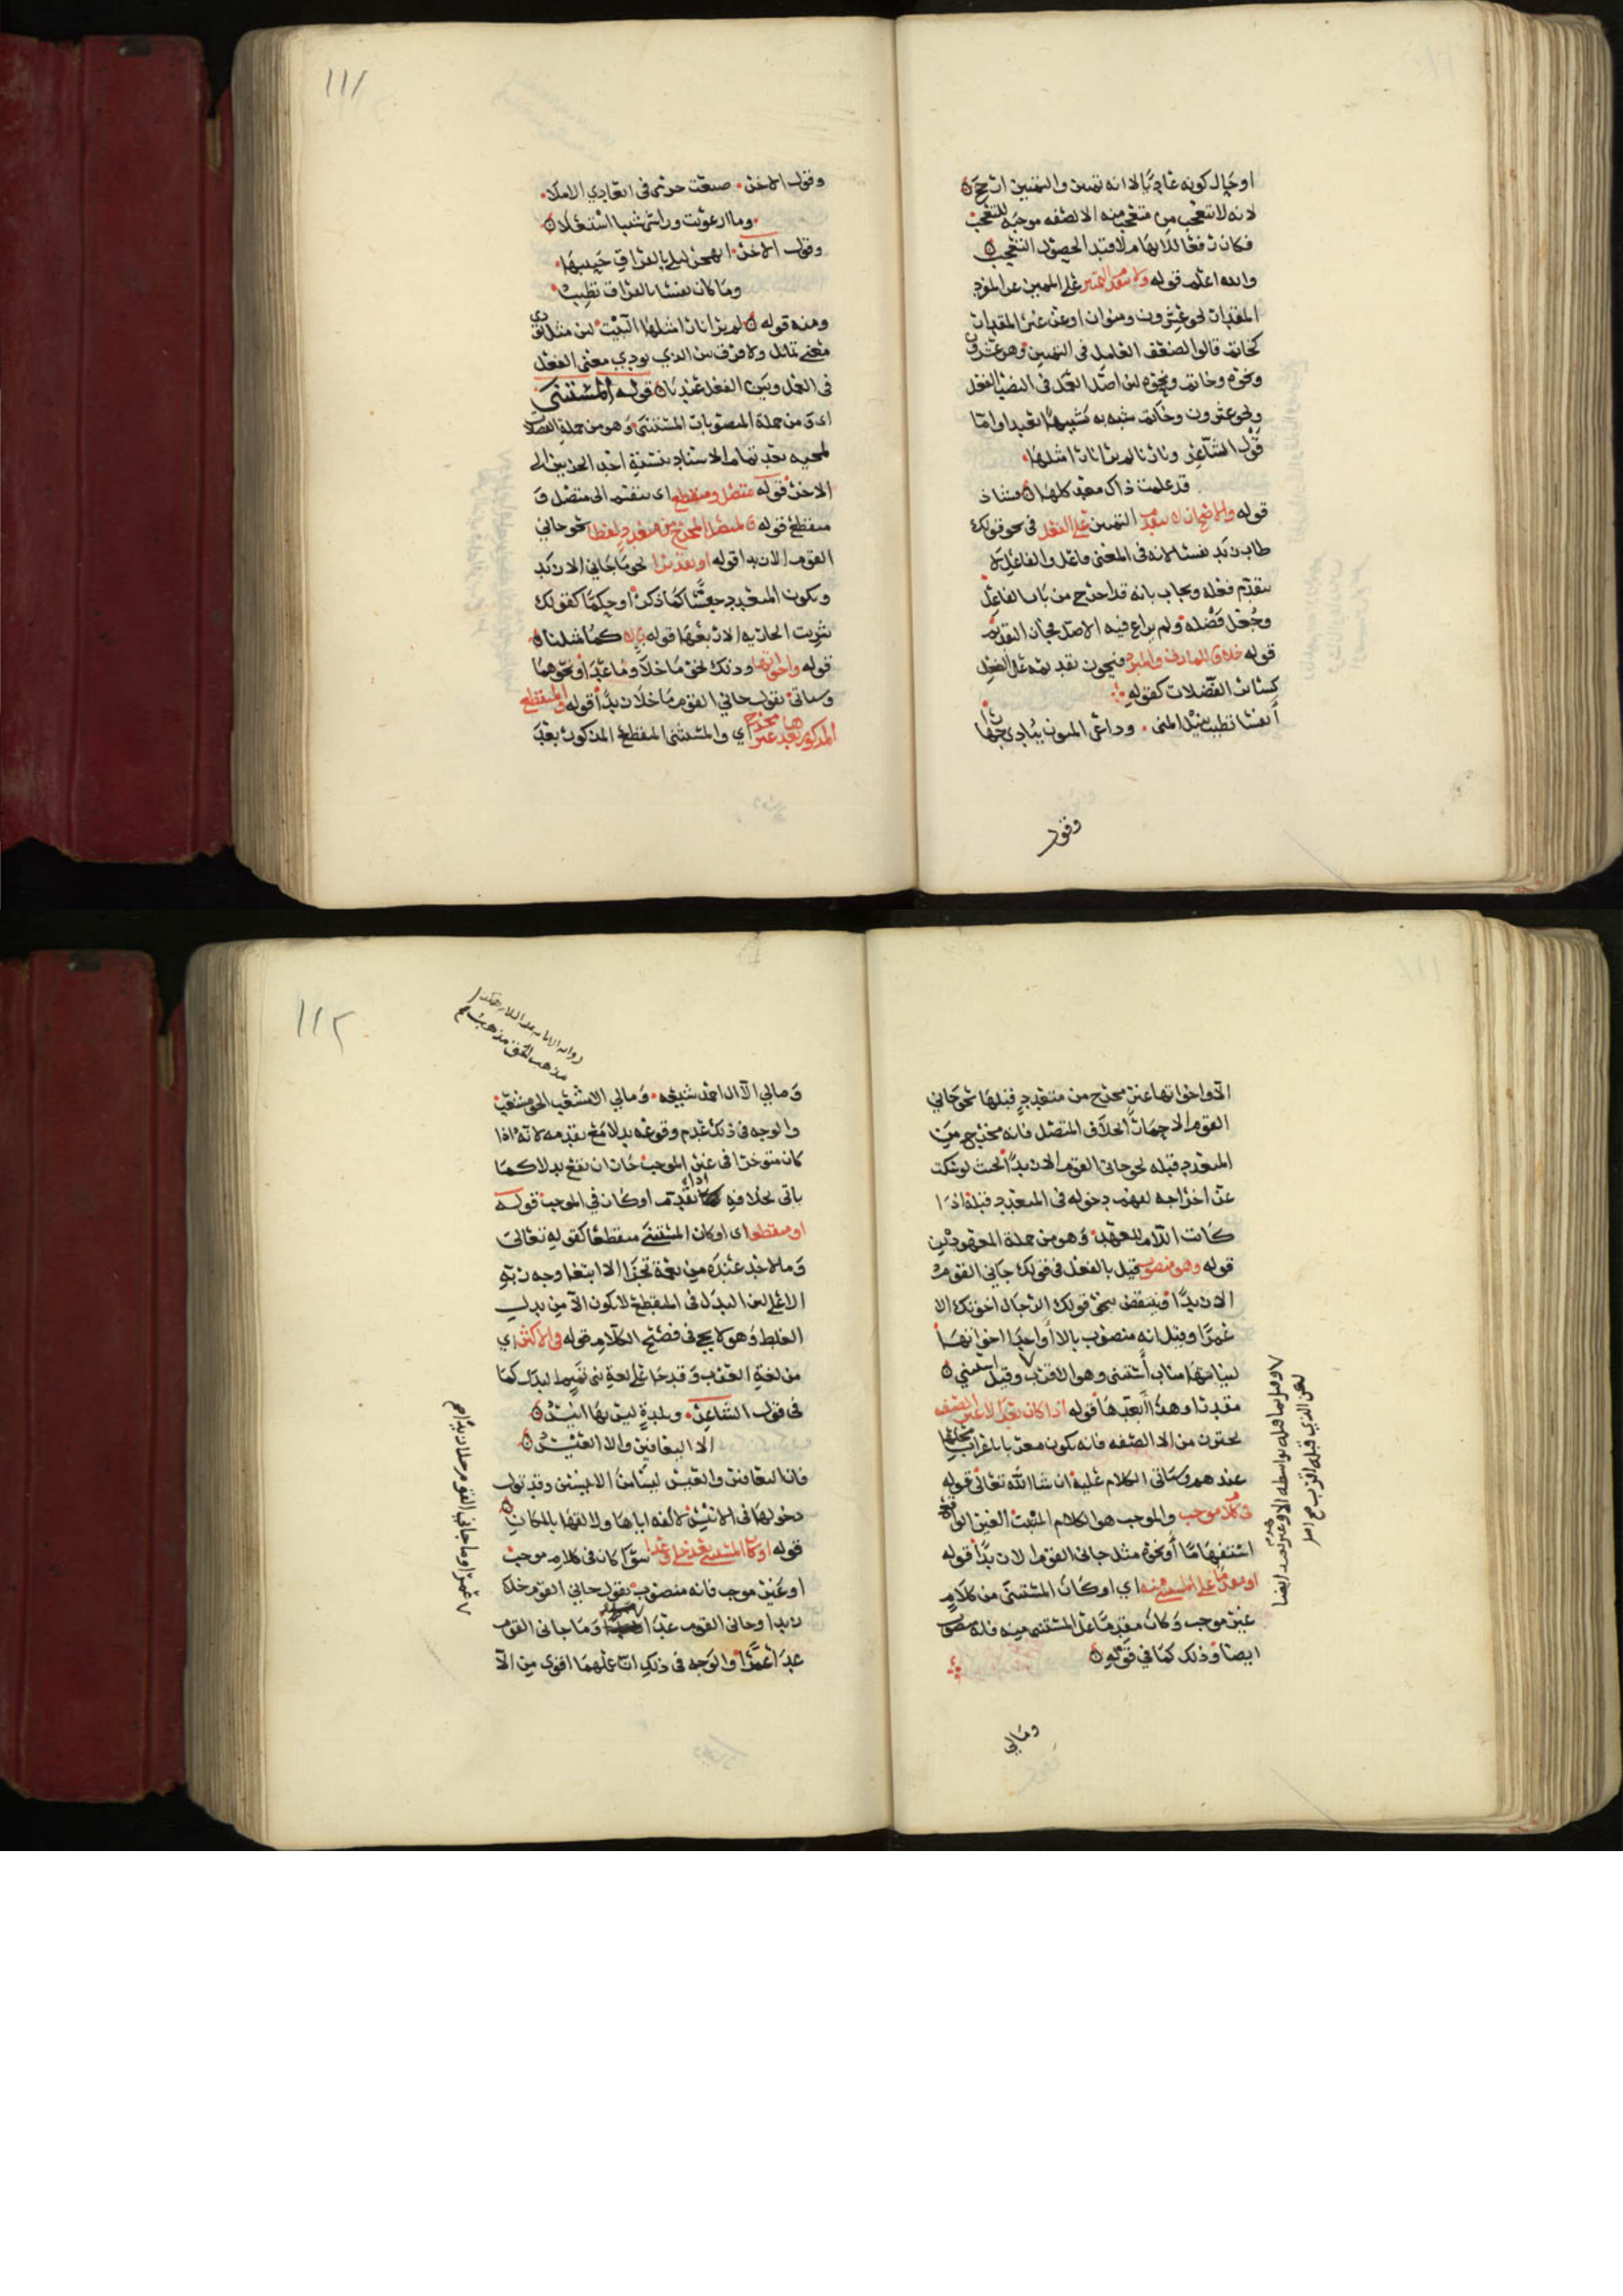 او حال كونه عاديا الا انه تمييز والتمييز ارجح
لانه لا تتعجب من متعجب منه الا لصفه موجبه للتعجب
فكان رفعا للابهام لا قيد الحصول التعجب
والله اعلم قوله ولا يتقدم التمييز على المميز عن المفرد
المقدرات نحو عشرون ومنوان او عن غير المقدرات
كخاتم قالوا لضعف العامل في التمييز وهو عشرون
ونحوه وخاتم ونحوه لان اصل العمل في النصب للفعل
ونحو عشرون وخاتم شبه به تشبيها بعيدا واما
قول الشاعر ونارنا لم ير نارا مثلها
قد علمت ذاك معد كلها فشاذ
قوله والاصح ان لا يتقدم التمييز على الفعل في نحو قولك
طاب زيد نفسا لانه في المعنى فاعل والفاعل لا
يتقدم فعله ويجاب بانه قد اخرج من باب الفاعل
وجعل فضله ولم يراع فيه الاصل فجاز التقديم
قوله خلافا للمازني والمبرد فيجوز تقديمه على الفعل
كسائر الفضلات كقوله
أنفسا تطيب بنيل المنى وداعي المنون ينادي جهارا
وقول
١١١
وقول الاخر ضيعت حزمي في ابعادي الاملا
وما ارعويت وراسي شيبا اشتعلا
وقول الاخر اتهجر ليلى بالفراق حبيبها
وما كان نفسا بالفراق تطيب
ومنه قوله لم ير نارا مثلها البيت لان مثل يؤدي
معنى تماثل ولا فرق بين الذي يودي معنى الفعل
في العمل وبين الفعل عنديا قوله المستثنى
اي ومن جملة المنصوبات المستثنى وهو من جملة الفضلات
لمجيه بعد تمام الاسناد بنسبة احد الجزئين الى
الاخر قوله متصل ومنقطع اي ينقسم الى متصل و
منقطع قوله فالمتصل المخرج من متعدد لفظا نحو جاني
القوم الا زيدا قوله او تقديرا نحو ما جاني الا زيد
ويكون المتعدد حسا كما ذكر او حكما كقولك
شريت الجاريه الا ربعها قوله بالا كما مثلنا
قوله واخواتها وذلك نحو ما خلا وما عدا ونحوهما
وسياتي تقول جاني القوم ما خلا زيدا قوله والمنقطع
المذكور بعدها غير مخرج اي والمستثنى المنقطع المذكور بعد
الا واخواتها غير مخرج من متعدد قبلها نحو جاني
القوم الا حمارا بخلاف المتصل فانه مخرج من
المتعدد قبله نحو جاني القوم الا زيدا بحيث لو سكت
عن اخراجه لفهم دخوله في المتعدد قبله اذا
كانت اللام للعهد وهو من جملة المعهودين
قوله وهو منصوب قيل بالفعل في قولك جاني القوم
الا زيدا وينتقض بنحو قولك الرجال اخوتك الا
عمرا وقيل انه منصوب بالا واحدا اخواتها
لنيابتها مناب أستثنى وهو الاقرب وقيل استثني
مقدرا وهذا أبعدها قوله اذا كان بعد الا غير الصفه
يحترز من الا الصفه فانه يكون معربا باعراب محلها
عندهم وسياتي الكلام عليه ان شا الله تعالى قوله
في كلام موجب والموجب هو الكلام المثبت الغير الواقع
استفهاما أو نحوه مثل جاني القوم الا زيدا قوله
او مقدما على المستثنى منه اي او كان المستثنى من كلام
غير موجب وكان مقدما على المستثنى منه فانه منصوب
ايضا وذلك كما في قوله
وقيل بما قبله بواسطة الا وغير بعيد ايضا
لان الذي قبله اقرب صح اصل
ومالي
١١٢
رواية الامام عليه السلام هكذا
مذهب الحق مذهب صح
وما لي الا ال احمد شيعه وما لي الا مشعب الحق مشعب
والوجه في ذلك عدم وقوعه بدلا مع تقدمه لانه اذا
كان متوخرا في غير الموجب جاز ان يقع بدلا كما
ياتي بخلافه اذا تقدم او كان في الموجب قوله
او منقطعا اي او كان المستثنى منقطعا كقوله تعالى
وما لاحد عنده من نعمة تجزا الا ابتغا وجه ربه
الاعلى لان البدل في المنقطع لا يكون الا من بدل
الغلط وهو لا يجي في فصيح الكلام قوله في الاكثر اي
من لغة العرب وقد جا على لغة بني تميم البدل كما
في قول الشاعر وبلدة ليس بها انيس
الا اليعافير والا العيس
فان اليعافير والعيس ليسا من الانيس وقد تول
دخولها في الانيس لألفه اياها ولالفها بالمكان
قوله او كان المستثنى بعد خلا وعدا سوا كان في كلام موجب
او غير موجب فانه منصوب تقول جاني القوم خلا
زيدا وجاني القوم عدا وما جاني القوم
عدا عمرا والوجه في ذلك ان عملهما اقوى من الا
عمرا وما جاني القوم خلا زيدا صح